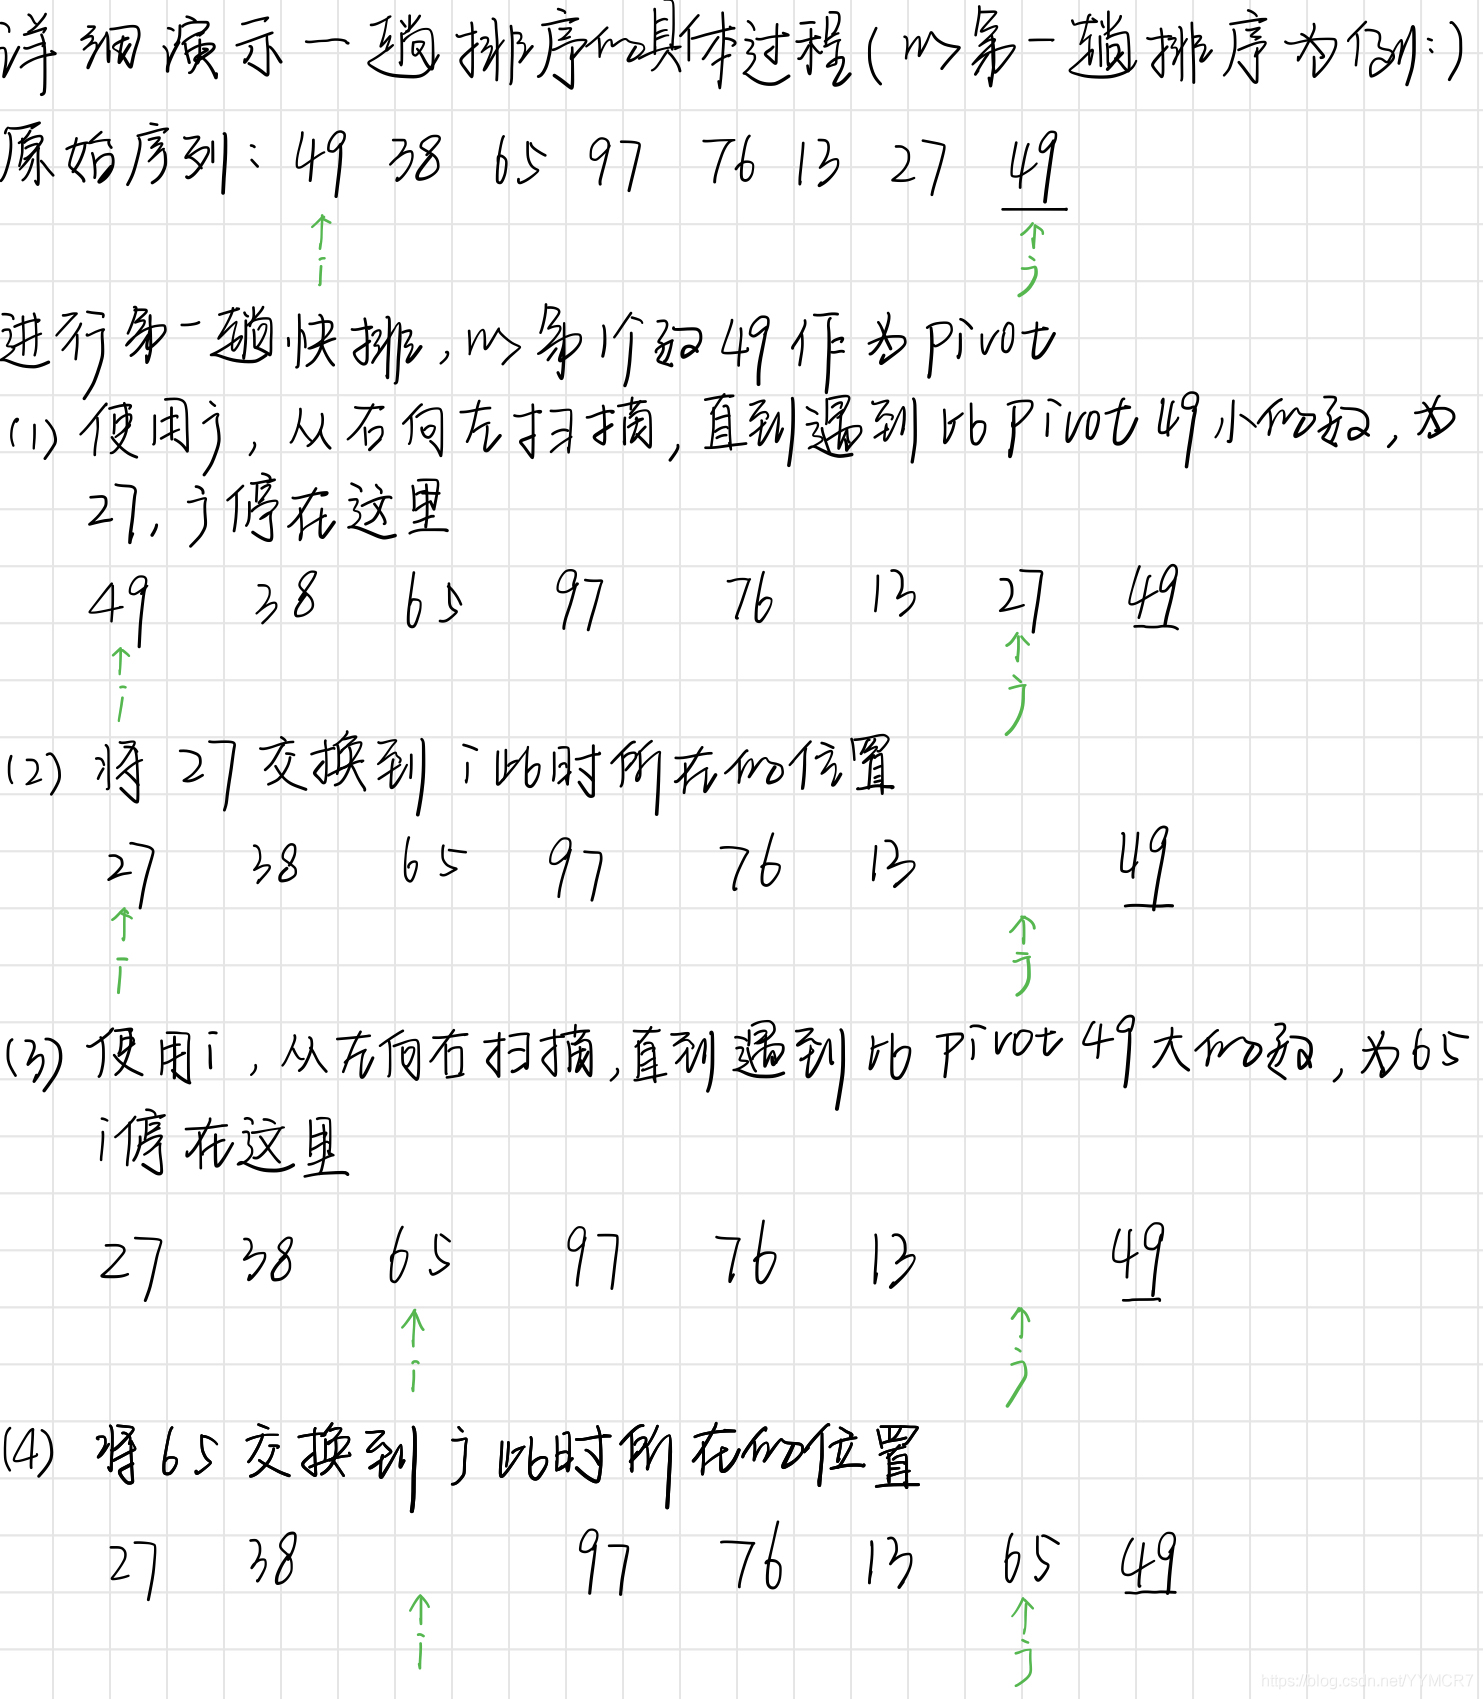 详细演示一趟排序的具体过程(以第一趟排序为例:)
原始序列: 49 38 65 97 76 13 27 49
i j
进行第一趟快排,以第1个数49作为pivot
(1) 使用j,从右向左扫描,直到遇到比pivot 49小的数,为
27,j停在这里
49 38 65 97 76 13 27 49
i j
(2) 将27交换到i此时所在的位置
27 38 65 97 76 13 49
i j
(3) 使用i,从左向右扫描,直到遇到比pivot 49大的数,为65
i停在这里
27 38 65 97 76 13 49
i j
(4) 将65交换到j此时所在的位置
27 38 97 76 13 65 49
i j
https://blog.csdn.net/YYMCR7